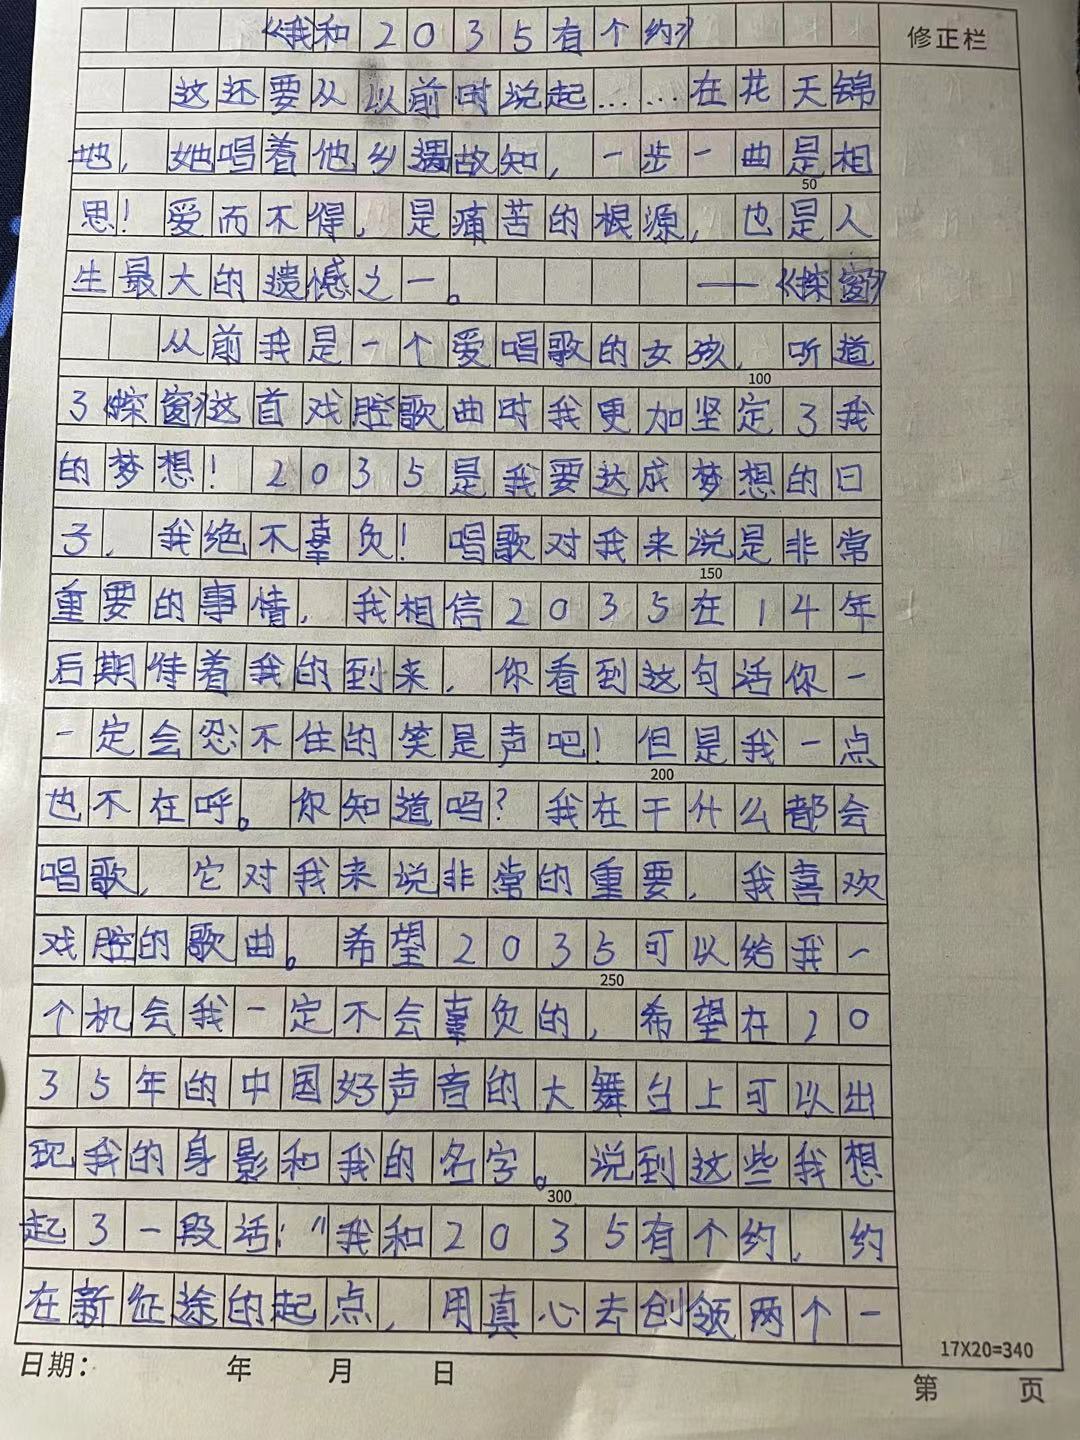 《我和2035有个约》
修正栏
这还要从以前时说起……在花天锦
地，她唱着他乡遇故知，一步一曲是相
50
思！爱而不得，是痛苦的根源，也是人
生最大的遗憾之一。——《探窗》
从前我是一个爱唱歌的女孩，听道
100
了《探窗》这首戏腔歌曲时我更加坚定了我
的梦想！2035是我要达成梦想的日
子，我绝不辜负！唱歌对我来说是非常
150
重要的事情，我相信2035在14年
后期待着我的到来，你看到这句话你一
一定会忍不住的笑是声吧！但是我一点
200
也不在呼。你知道吗？我在干什么都会
唱歌，它对我来说非常的重要，我喜欢
戏腔的歌曲。希望2035可以给我一
250
个机会我一定不会辜负的，希望在20
35年的中国好声音的大舞台上可以出
现我的身影和我的名字。说到这些我想
300
起了一段话："我和2035有个约，约
在新征途的起点，用真心去创领两个一
17X20=340
日期： 年 月 日
第 页